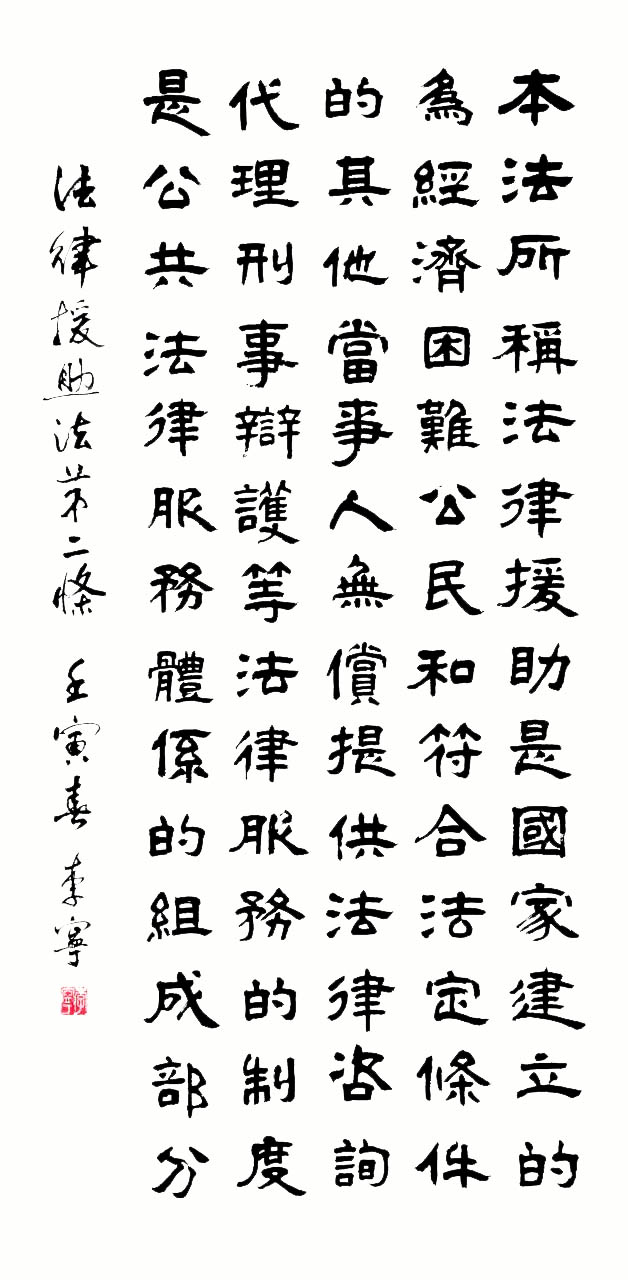 本法所稱法律援助是國家建立的
為經濟困難公民和符合法定條件
的其他當事人無償提供法律咨詢
代理刑事辯護等法律服務的制度
是公共法律服務體係的組成部分
法律援助法第二條 壬寅春 李寧